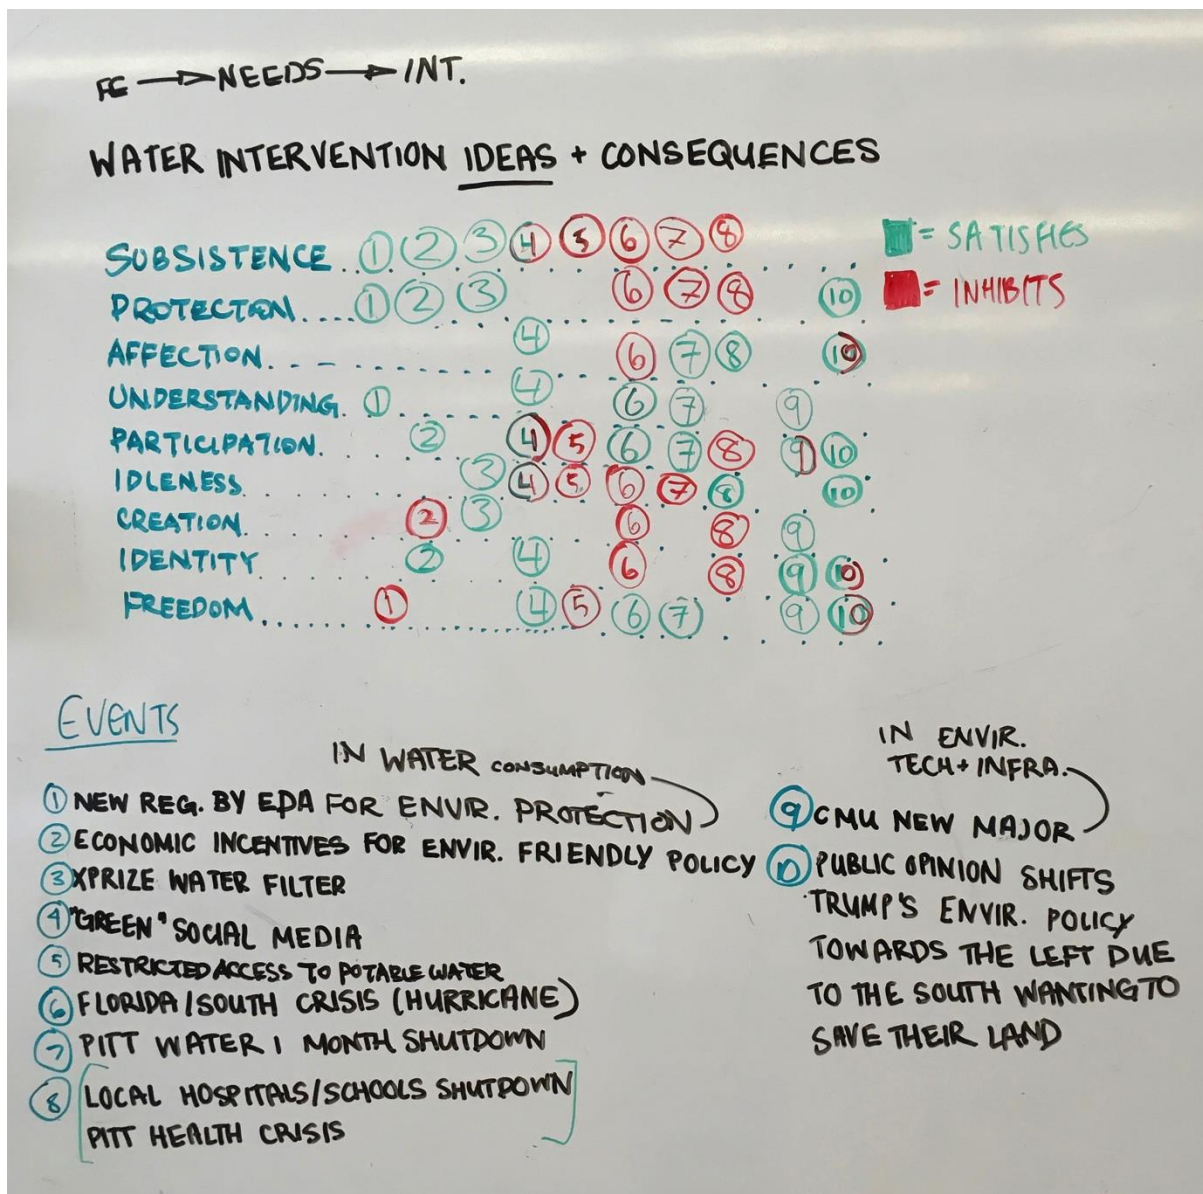 FE → NEEDS → INT.
WATER INTERVENTION IDEAS + CONSEQUENCES
SUBSISTENCE.. 1 2 3 4 5 6 7 8
PROTECTION.... 1 2 3 6 7 8 10
AFFECTION. 4 6 7 8 10
UNDERSTANDING. 1 4 6 7 9
PARTICIPATION. 2 4 5 6 7 8 9 10
IDLENESS 3 4 5 6 7 8 10
CREATION. 2 3 6 8 9
IDENTITY. 2 4 6 8 9 10
FREEDOM.... 1 4 5 6 7 9 10
= SATISFIES
= INHIBITS
EVENTS
IN WATER CONSUMPTION
① NEW REG. BY EPA FOR ENVIR. PROTECTION
② ECONOMIC INCENTIVES FOR ENVIR. FRIENDLY POLICY
③ XPRIZE WATER FILTER
④ "GREEN" SOCIAL MEDIA
⑤ RESTRICTED ACCESS TO POTABLE WATER
⑥ FLORIDA/SOUTH CRISIS (HURRICANE)
⑦ PITT WATER 1 MONTH SHUTDOWN
⑧ LOCAL HOSPITALS/SCHOOLS SHUTDOWN
PITT HEALTH CRISIS
IN ENVIR.
TECH + INFRA.
⑨ CMU NEW MAJOR
⑩ PUBLIC OPINION SHIFTS
TRUMP'S ENVIR. POLICY
TOWARDS THE LEFT DUE
TO THE SOUTH WANTING TO
SAVE THEIR LAND